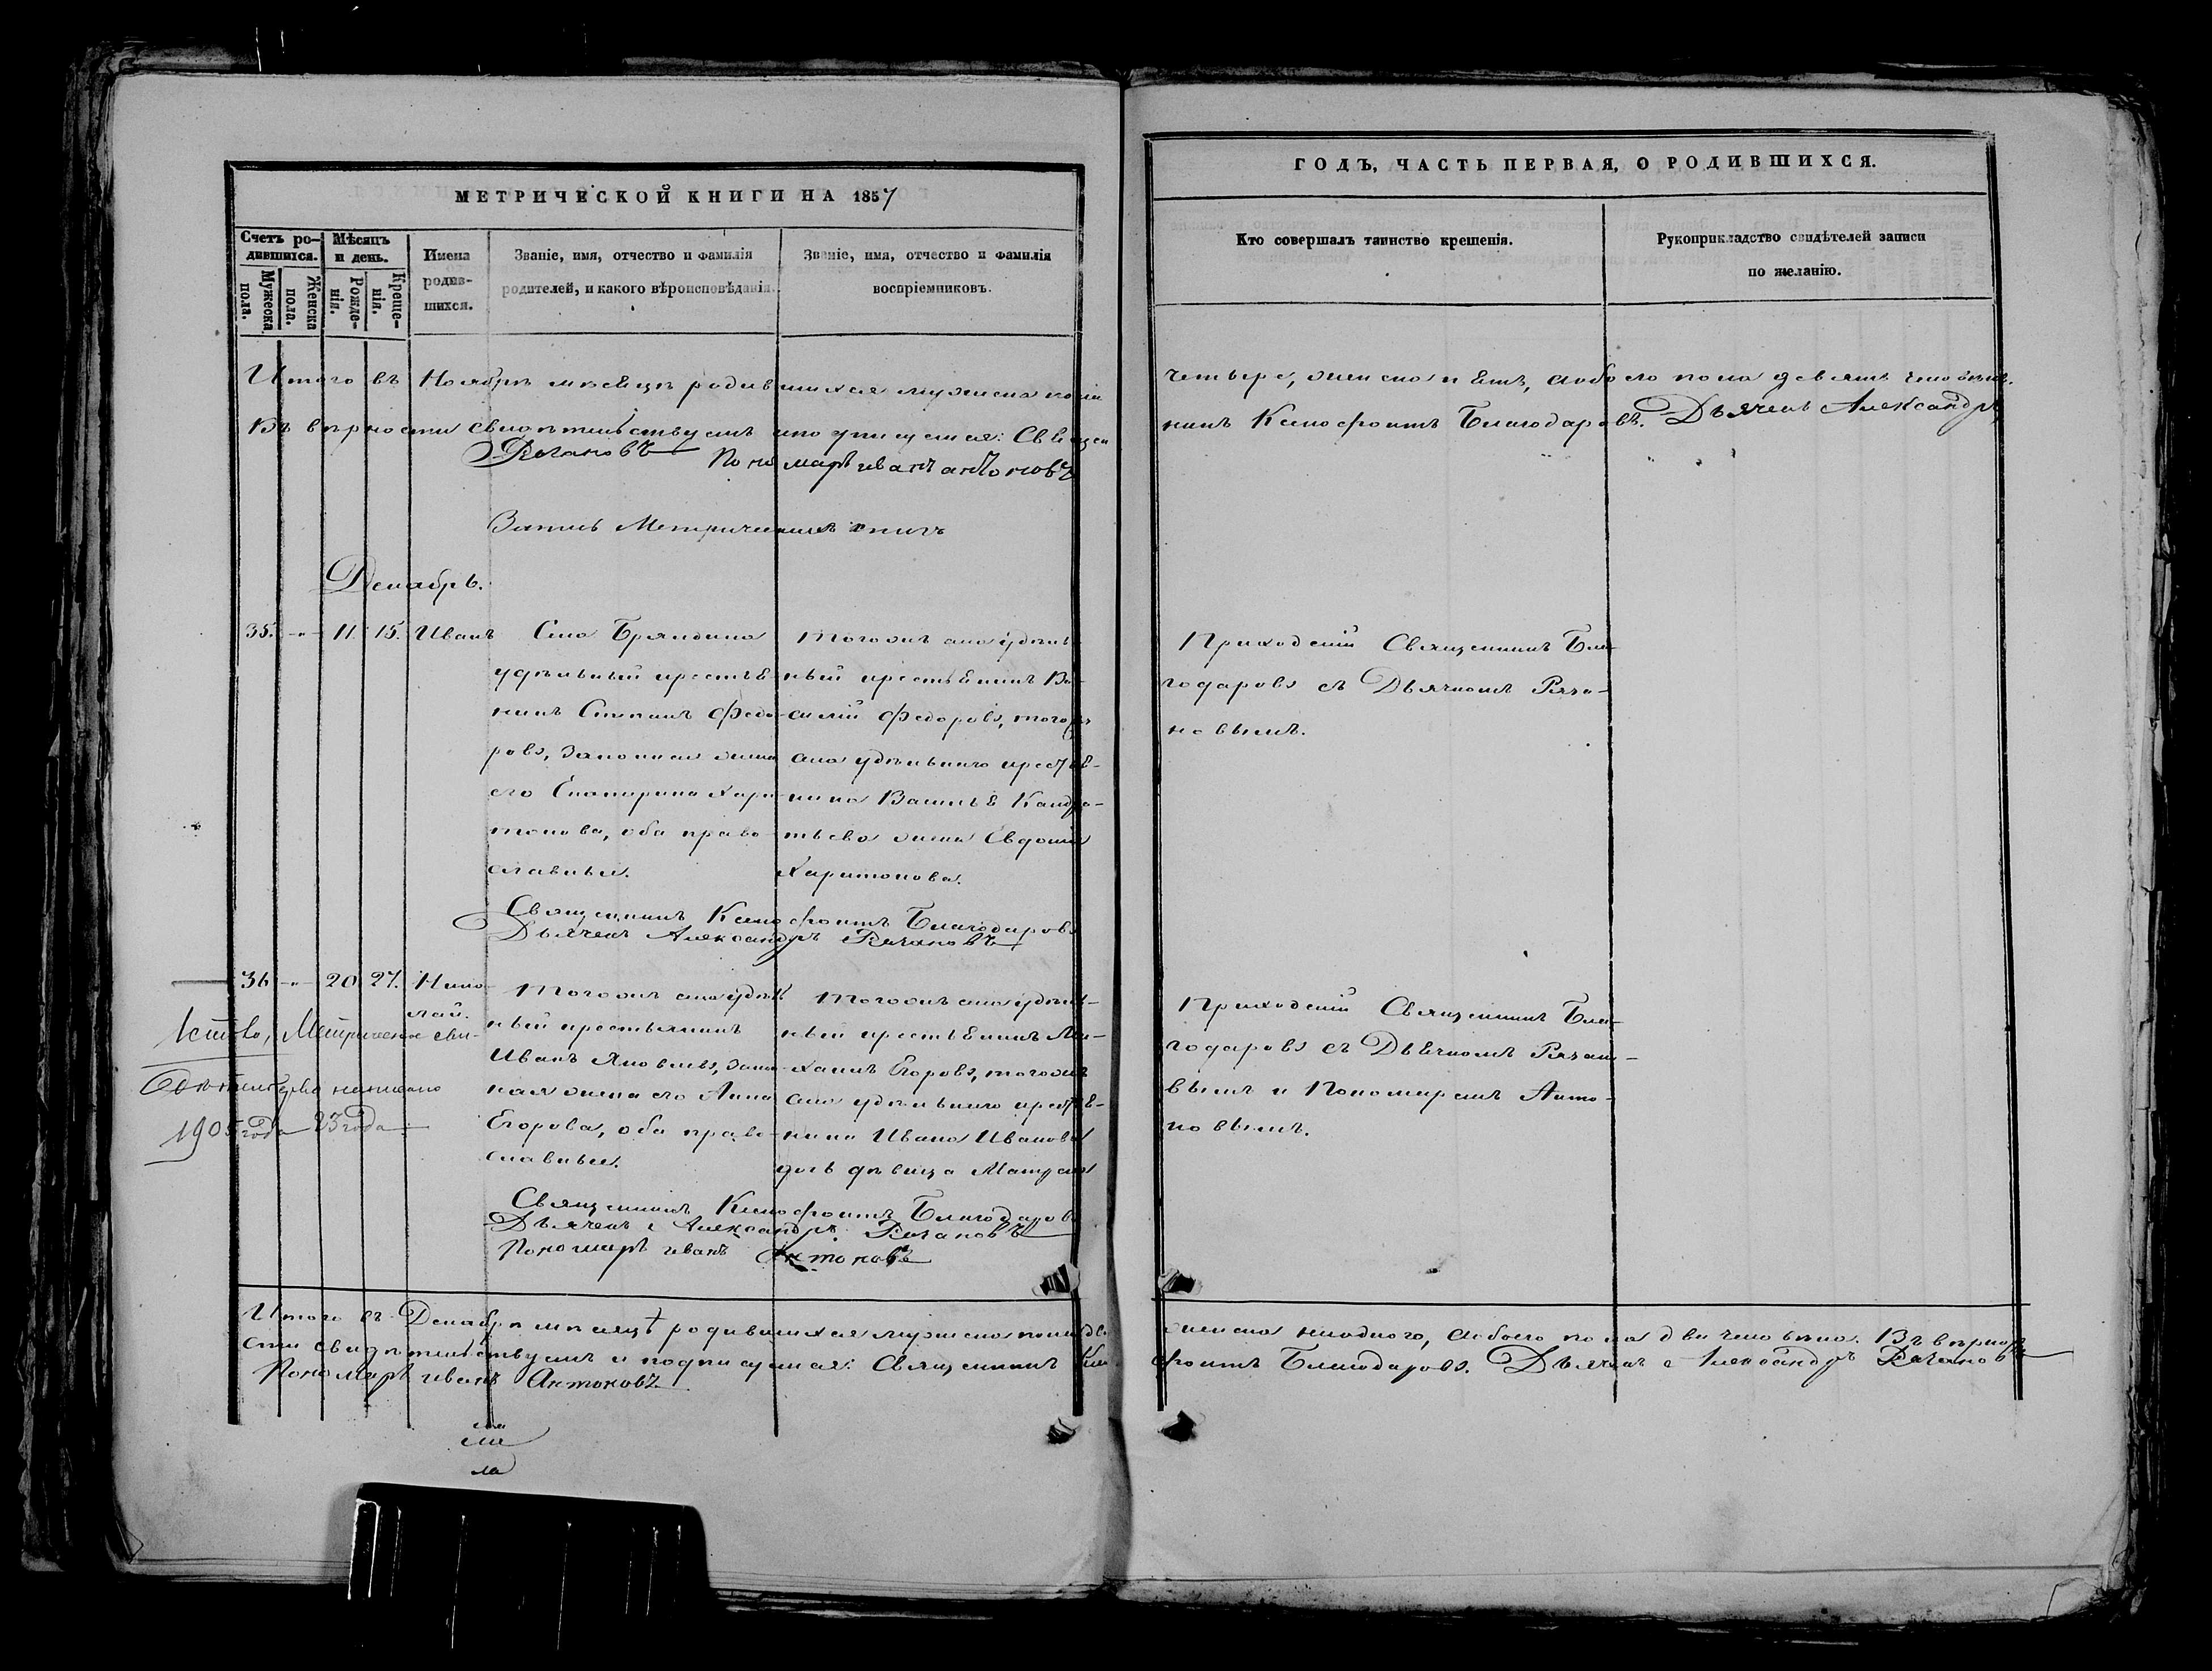 МЕТРИЧЕСКОЙ КНИГИ НА 1857
ГОДЪ, ЧАСТЬ ПЕРВАЯ, О РОДИВШИХСЯ.
Счетъ ро-
дившихся.
Мужеска
пола.
Женска
пола.
Мѣсяцъ
и день.
Рожде-
нія.
Креще-
нія.
Имена
родив-
шихся.
Званіе, имя, отчество и фамилія
родителей, и какого вѣроисповѣданія.
Званіе, имя, отчество и фамилія
воспріемниковъ.
Кто совершалъ таинство крещенія.
Рукоприкладство свидѣтелей записи
по желанію.
Итого въ Ноябрѣ мѣсяцѣ родившихся мужеска пола четыре, женска пять, обоего пола девять человѣкъ.
Въ вѣрности свидѣтельствуемъ и подписуемся: Священникъ Ксенофонтъ Благодаровъ. Дьячекъ Александръ
Рачановъ Пономарь иванъ антоновъ
Запись Метрическихъ книгъ
Декабрь.
35. -"- 11. 15. Иванъ
Села Бряндина
удѣльный крестья-
нинъ Степанъ Федо-
ровъ, законная жена
его Екатерина Хари-
тонова, оба право-
славные.
Тогожъ села удѣль-
ный крестьянинъ Ва-
силій Федоровъ, тогожъ
села удѣльнаго крестья-
нина Василья Кондра-
тьева жена Евдокія
Харитонова.
Приходскій Священникъ Бла-
годаровъ съ Дьячкомъ Рача-
новымъ.
Священникъ Ксенофонтъ Благодаровъ
Дьячекъ Александръ Рачановъ
36 -"- 20 27. Нико-
лай.
Тогожъ села удѣль-
ный крестьянинъ
Иванъ Яковлевъ, закон-
ная жена его Анна
Егорова, оба право-
славные.
Тогожъ села удѣль-
ный крестьянинъ Ми-
хаилъ Егоровъ, тогожъ
села удѣльнаго крестья-
нина Ивана Иванова
дочь дѣвица Матрена
Приходскій Священникъ Бла-
годаровъ съ Дьячкомъ Рачано-
вымъ и Пономаремъ Анто-
новымъ.
Метрическое сви-
написано
1905 года 23 года
Священникъ Ксенофонтъ Благодаровъ
Дьячекъ Александръ Рачановъ
Пономарь иванъ Антоновъ
Итого въ Декабрѣ мѣсяцѣ родившихся мужеска пола два, женска ниоднаго, обоего пола два человѣка. Въ вѣрно-
сти свидѣтельствуемъ и подписуемся: Священникъ Ксенофонтъ Благодаровъ. Дьячекъ Александръ Рачановъ
Пономарь иванъ Антоновъ
ла